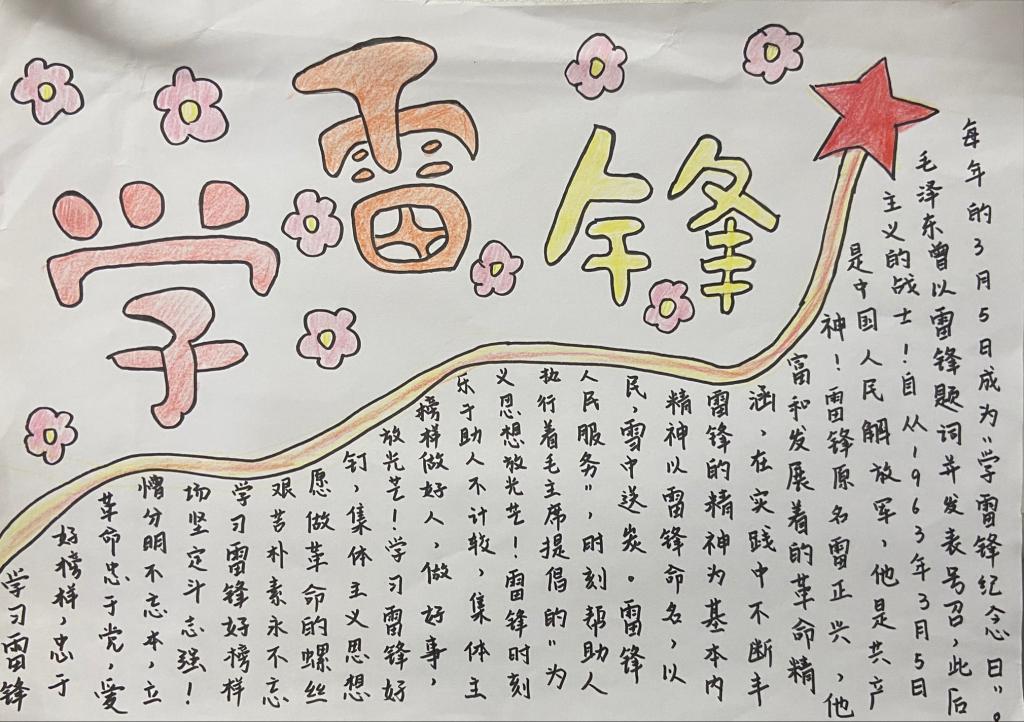 学雷锋
学习雷锋
好榜样,忠于
革命忠于党,爱
憎分明不忘本,立
场坚定斗志强!
学习雷锋好榜样
艰苦朴素永不忘
愿做革命的螺丝
钉,集体主义思想
放光芒!学习雷锋好
榜样做好人,做好事,
乐于助人不计较,集体主
义思想放光芒!雷锋时刻
执行着毛主席提倡的“为
人民服务”,时刻帮助人
民,雪中送炭。雷锋
精神以雷锋命名,以
雷锋的精神为基本内
涵,在实践中不断丰
富和发展着的革命精
神!雷锋原名雷正兴,他
是中国人民解放军,他是共产
主义的战士!自从1963年3月5日
毛泽东曾以雷锋题词并发表号召,此后
每年的3月5日成为“学雷锋纪念日”。